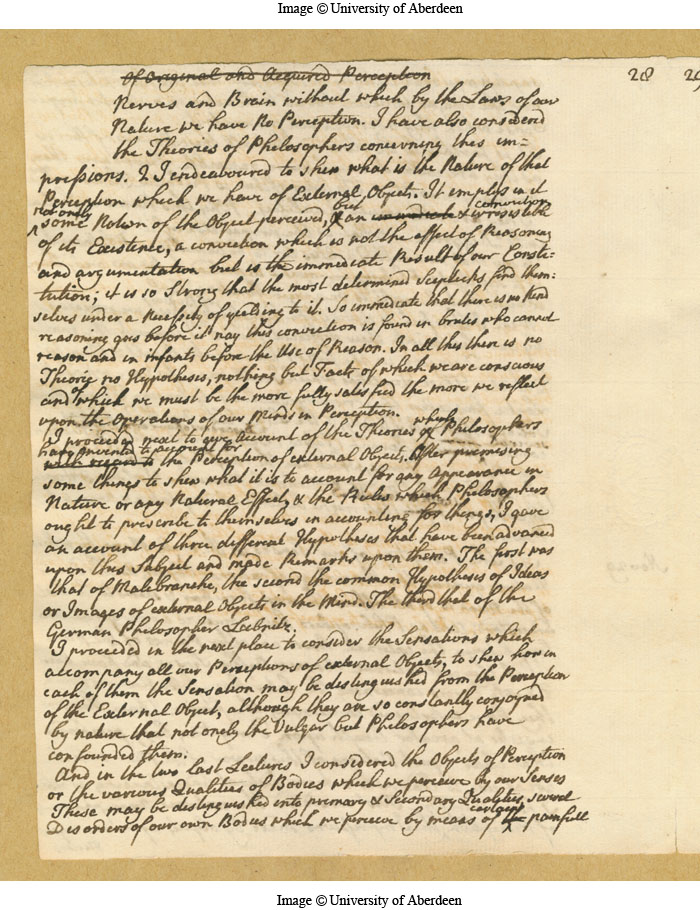 Image © University of Aberdeen
28
29
Of Original and Acquired Perception
Nerves and Brain without which by the Laws of our
Nature we have No Perception. I have also considered
the Theories of Philosophers concerning this im=
pressions. 2 I endeavoured to shew what is the Nature of that
Perception which we have of External Objects. It implys in it
not onely but conviction
some Notion of the Object perceived, an immediate & irresistible
of its Existence, a conviction which is not the effect of Reasoning
and argumentation but is the immediate Result of our Consti=
tution; it is so Strong that the most determined Scepticks find them=
selves under a Necessity of yielding to it. So immediate that there is no kind
reasoning goes before it nay this conviction is found in brutes who cannot
reason and in infants before the Use of Reason. In all this there is no
Theorie no Hypothesis, nothing but Facts of which we are conscious
and of which we must be the more fully satisfied the more we reflect
upon the Operations of our Minds in Perception.
I proceeded next to give Account of the Theories which Philosophers
have invented to account for
with regard to the Perception of external Objects. After premising
some things to shew what it is to account for any Appearance in
Nature or any Natural Effect, & the Rules which Philosophers
ought to prescribe to themselves in accounting for things, I gave
an account of three different Hypotheses that have been advanced
upon this Subject and made Remarks upon them. The first was
that of Malebranche, the second the common Hypothesis of Ideas
or Images of external Objects in the Mind. The third that of the
German Philosopher Leibnitz.
I proceeded in the next place to consider the Sensations which
accompany all our Perceptions of external Objects, to shew how in
each of them the Sensation may be distinguished from the Perception
of the External Object, although they are so constantly conjoyned
by nature that not onely the Vulgar but Philosophers have
confounded them.
And in the two last Lectures I considered the Objects of Perception
or the various Qualities of Bodies which we perceive by our Senses
These may be distinguished into primary & Secondary Qualities, several
certain
Disorders of our own Bodies which we perceive by means of painfull
Image © University of Aberdeen